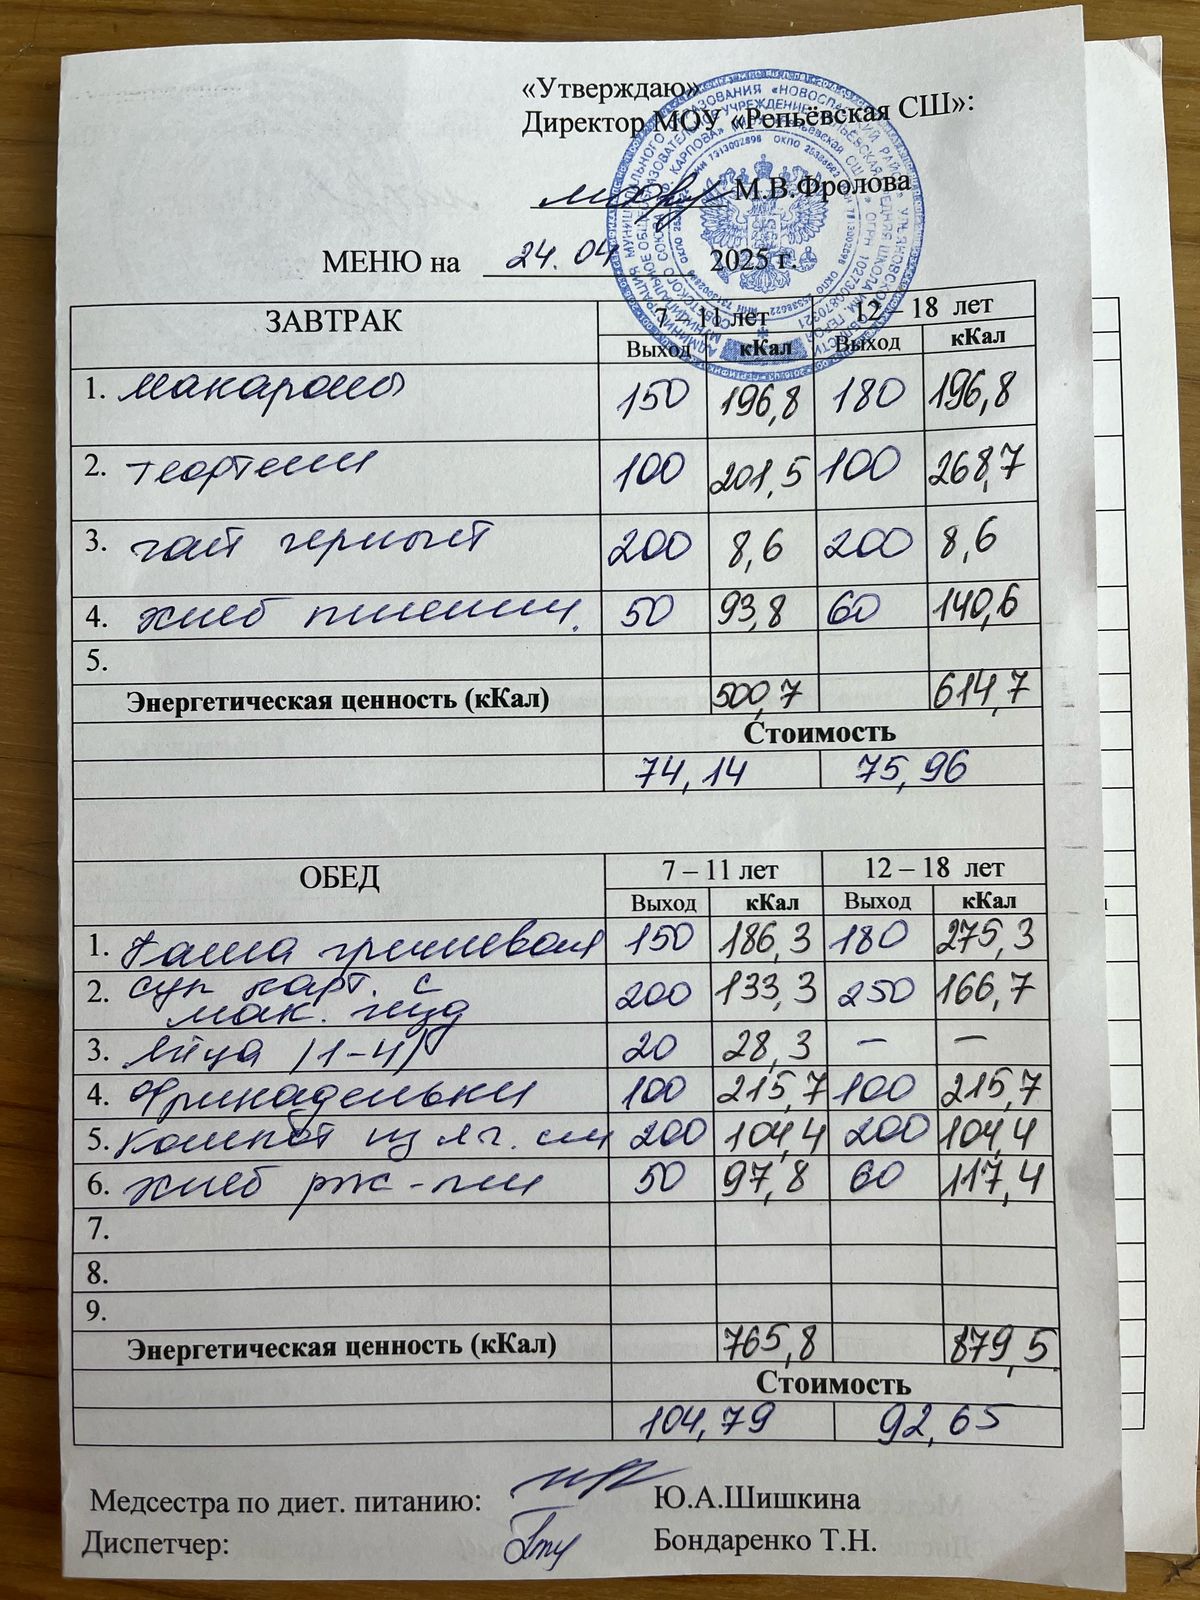 «Утверждаю»
Директор МОУ «Репьёвская СШ»:
М.В.Фролова
МЕНЮ на 24.04 2025 г.
ЗАВТРАК 7 – 11 лет 12 – 18 лет
Выход кКал Выход кКал
1. макароны 150 196,8 180 196,8
2. тефтели 100 201,5 100 268,7
3. чай черный 200 8,6 200 8,6
4. хлеб пшенич. 50 93,8 60 140,6
5.
Энергетическая ценность (кКал) 500,7 614,7
Стоимость
74,14 75,96
ОБЕД 7 – 11 лет 12 – 18 лет
Выход кКал Выход кКал
1. Каша гречневая 150 186,3 180 275,3
2. суп карт. с 200 133,3 250 166,7
мак. изд
3. яйца (1-4) 20 28,3 – –
4. Фрикадельки 100 215,7 100 215,7
5. Компот из яг. см 200 104,4 200 104,4
6. хлеб рж-пш 50 97,8 60 117,4
7.
8.
9.
Энергетическая ценность (кКал) 765,8 879,5
Стоимость
104,79 92,65
Медсестра по диет. питанию: Ю.А.Шишкина
Диспетчер: Бондаренко Т.Н.